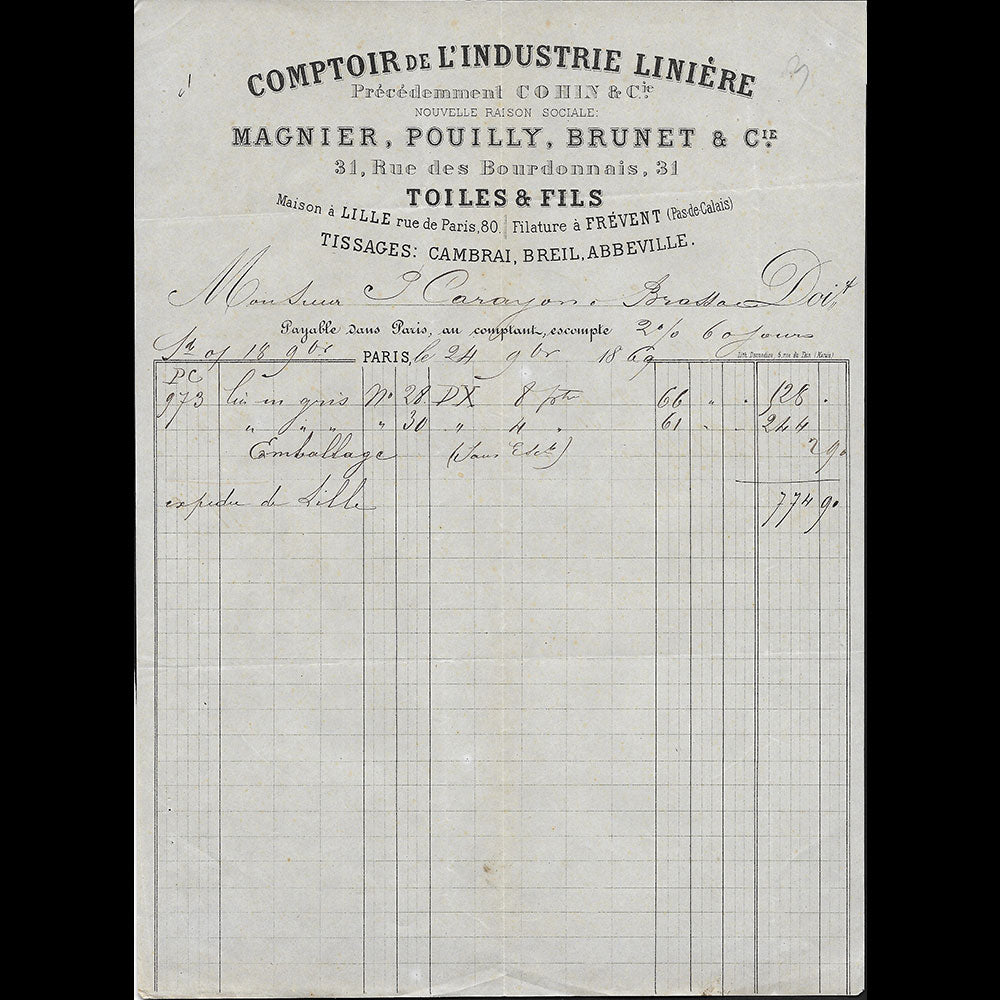 COMPTOIR DE L'INDUSTRIE LINIÈRE
Précédemment COHIN & Cie
NOUVELLE RAISON SOCIALE:
MAGNIER, POUILLY, BRUNET & CIE
31, Rue des Bourdonnais, 31
TOILES & FILS
Maison à LILLE rue de Paris, 80. Filature à FRÉVENT (Pas-de-Calais)
TISSAGES: CAMBRAI, BREIL, ABBEVILLE.
Monsieur P Carayon à Brassac Doit
Payable dans Paris, au comptant, escompte 2% 60 jours
18 9bre PARIS, le 24 9bre 1869
Lith. Dannedieu, 5, rue du Thin (Marais)
PC
973 lin en gris No 28 DX 8 pts 66 " " 128 "
" " " " 30 " 4 " 61 " " 244
Emballage (Sans Escte) 2 90
expédié de Lille 774 90